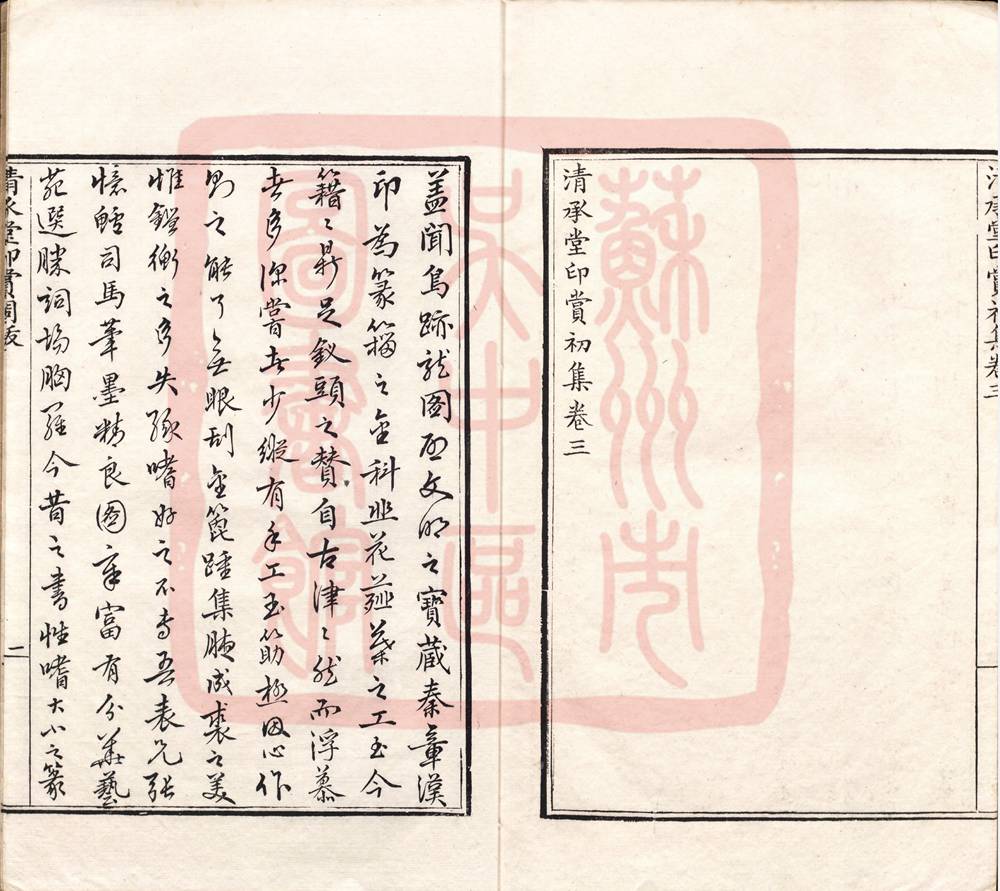 清承堂印賞初集卷三
清承堂印賞初集卷三
蓋聞鳥跡龍圖啟文明之寶藏秦章漢
印為篆籀之金科韭花薤葉之工至今
籍〻鼎足釵頭之贊自古津〻然而浮慕
者多深嘗者少縱有手工玉筯極因心作
則之能了無眼刮金篦踵集腋成裘之美
惟鑑衡之多失緣嗜好之不專吾表兄張
憶鱸司馬筆墨精良圖章富有分華藝
苑選勝詞場胸羅今昔之書性嗜大小之篆
清承堂印賞周
一
蘇州市
吳中區
圖書館